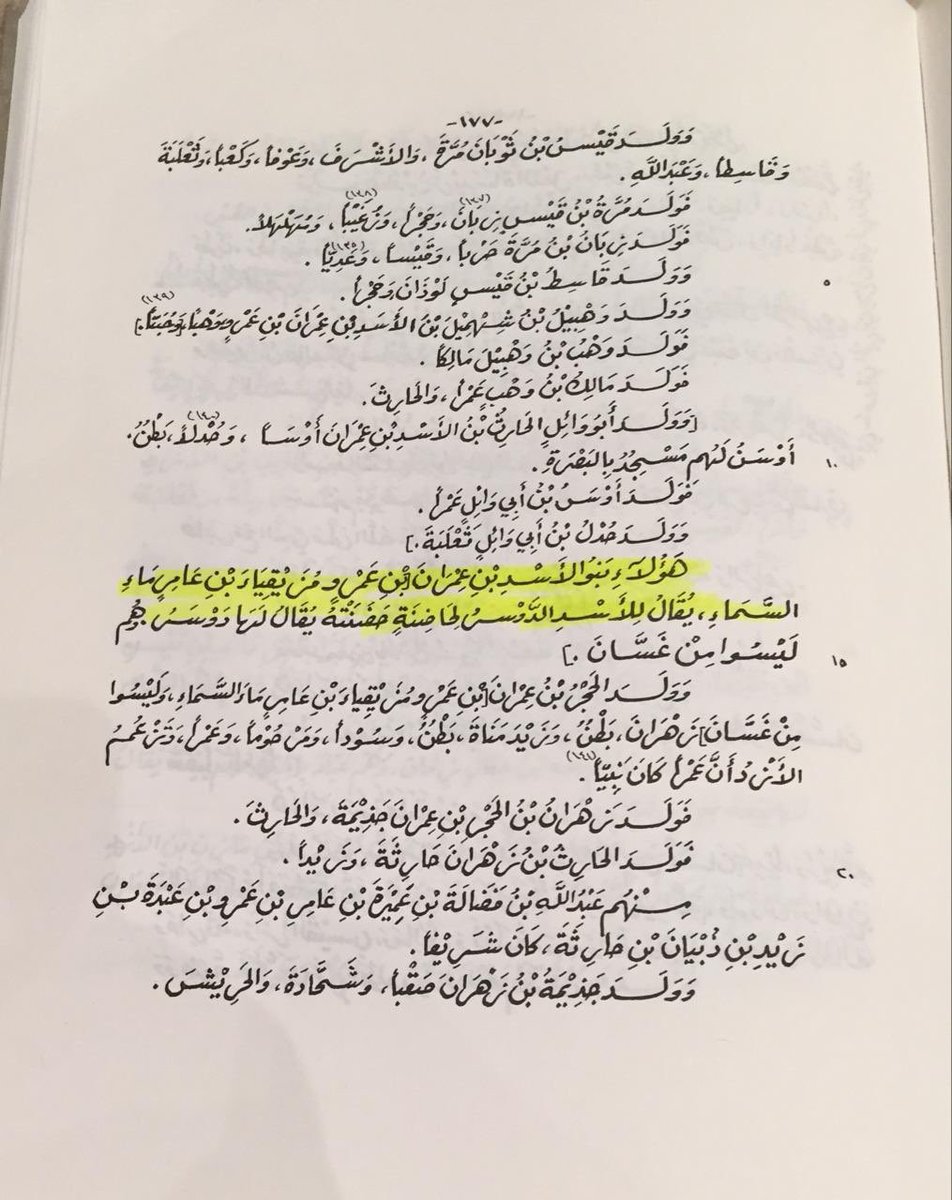 -١٧٧-
وَوَلَـدَ قَيْسُ بْنُ ثَوْبَانَ مُرَّةَ ، وَالأَشْرَفَ ، وَعَوْفاً ، وَكَعْباً ، وَثَعْلَبَةَ
وَقَاسِطاً ، وَعَبْدَ اللَّهِ .
فَوَلَـدَ مُرَّةُ بْنُ قَيْسٍ زِبَانَ (١٣٧) ، وَحَجْراً ، وَزُغَيْباً (١٣٨) ، وَمُهَلْهِلاً .
فَوَلَـدَ زِبَانُ بْنُ مُرَّةَ حَرْباً ، وَقَيْساً ، وَعَدِيّاً .
٥ وَوَلَـدَ قَاسِطُ بْنُ قَيْسٍ لَوْذَانَ وَحَجْراً .
وَوَلَـدَ وَهْبِيلُ بْنُ شِهْمِيلَ بْنِ الأَسْدِ بْنِ عِمْرَانَ بْنِ عَمْرٍو وَهْباً (١٣٩)
فَوَلَـدَ وَهْبُ بْنُ وَهْبِيلَ مَالِكاً .
فَوَلَـدَ مَالِكُ بْنُ وَهْبٍ عَمْراً ، وَالحَارِثَ .
[وَوَلَـدَ أَبُو وَائِلٍ الحَارِثُ بْنُ الأَسْدِ بْنِ عِمْرَانَ أَوْسَاً ، وَحُدْلاً (١٤٠) ، بَطْنُ .
١٠ أَوْسَنُ لَهُم مَسْجِدُ بِالبَصْرَةِ .
فَوَلَـدَ أَوْسُ بْنُ أَبِي وَائِلٍ عَمْراً .
وَوَلَـدَ حُدْلُ بْنُ أَبِي وَائِلٍ ثَعْلَبَةَ .]
هَؤُلَاءِ بَنُو الأَسْدِ بْنِ عِمْرَانَ [بْنِ عَمْرٍو مُزَيْقِيَاءَ بْنِ عَامِرٍ مَاءِ
السَّمَاءِ ، يُقَالُ لِلأَسْدِ الدَّوْسُ لِحَاضِنَةٍ حَضَنَتْهُ يُقَالُ لَهَا دَوْسُ ، وَهُم
١٥ لَيْسُوا مِنْ غَسَّانَ .]
وَوَلَـدَ الحَجْرُ بْنُ عِمْرَانَ [بْنِ عَمْرٍو مُزَيْقِيَاءَ بْنِ عَامِرٍ مَاءِ السَّمَاءِ ، وَلَيْسُوا
مِنْ غَسَّانَ] زَهْرَانَ ، بَطْنُ ، وَزَيْدَ مَنَاةَ ، بَطْنُ ، وَسُوداً ، وَمَرْحُوماً ، وَعَمْراً ، وَتَزْعُمُ
الأَزْدُ أَنَّ عَمْراً كَانَ نَبِيّاً (١٤١) .
فَوَلَـدَ زَهْرَانُ بْنُ الحَجْرِ بْنِ عِمْرَانَ جَذِيْمَةَ ، وَالحَارِثَ .
٢٠ فَوَلَـدَ الحَارِثُ بْنُ زَهْرَانَ حَارِثَةَ ، وَزَيْداً .
مِـنْهُم عَبْدُ اللَّهِ بْنُ فَضَالَةَ بْنِ عَمِيْرَةَ بْنِ عَامِرِ بْنِ عَمْرِو بْنِ عَنْبَةَ بْنِ
زَيْدِ بْنِ ذُبْيَانَ بْنِ حَارِثَةَ ، كَانَ شَرِيْفاً .
وَوَلَـدَ جَذِيْمَةُ بْنُ زَهْرَانَ صَقْباً ، وَشَحَّادَةَ ، وَالحَرِيْشَ .